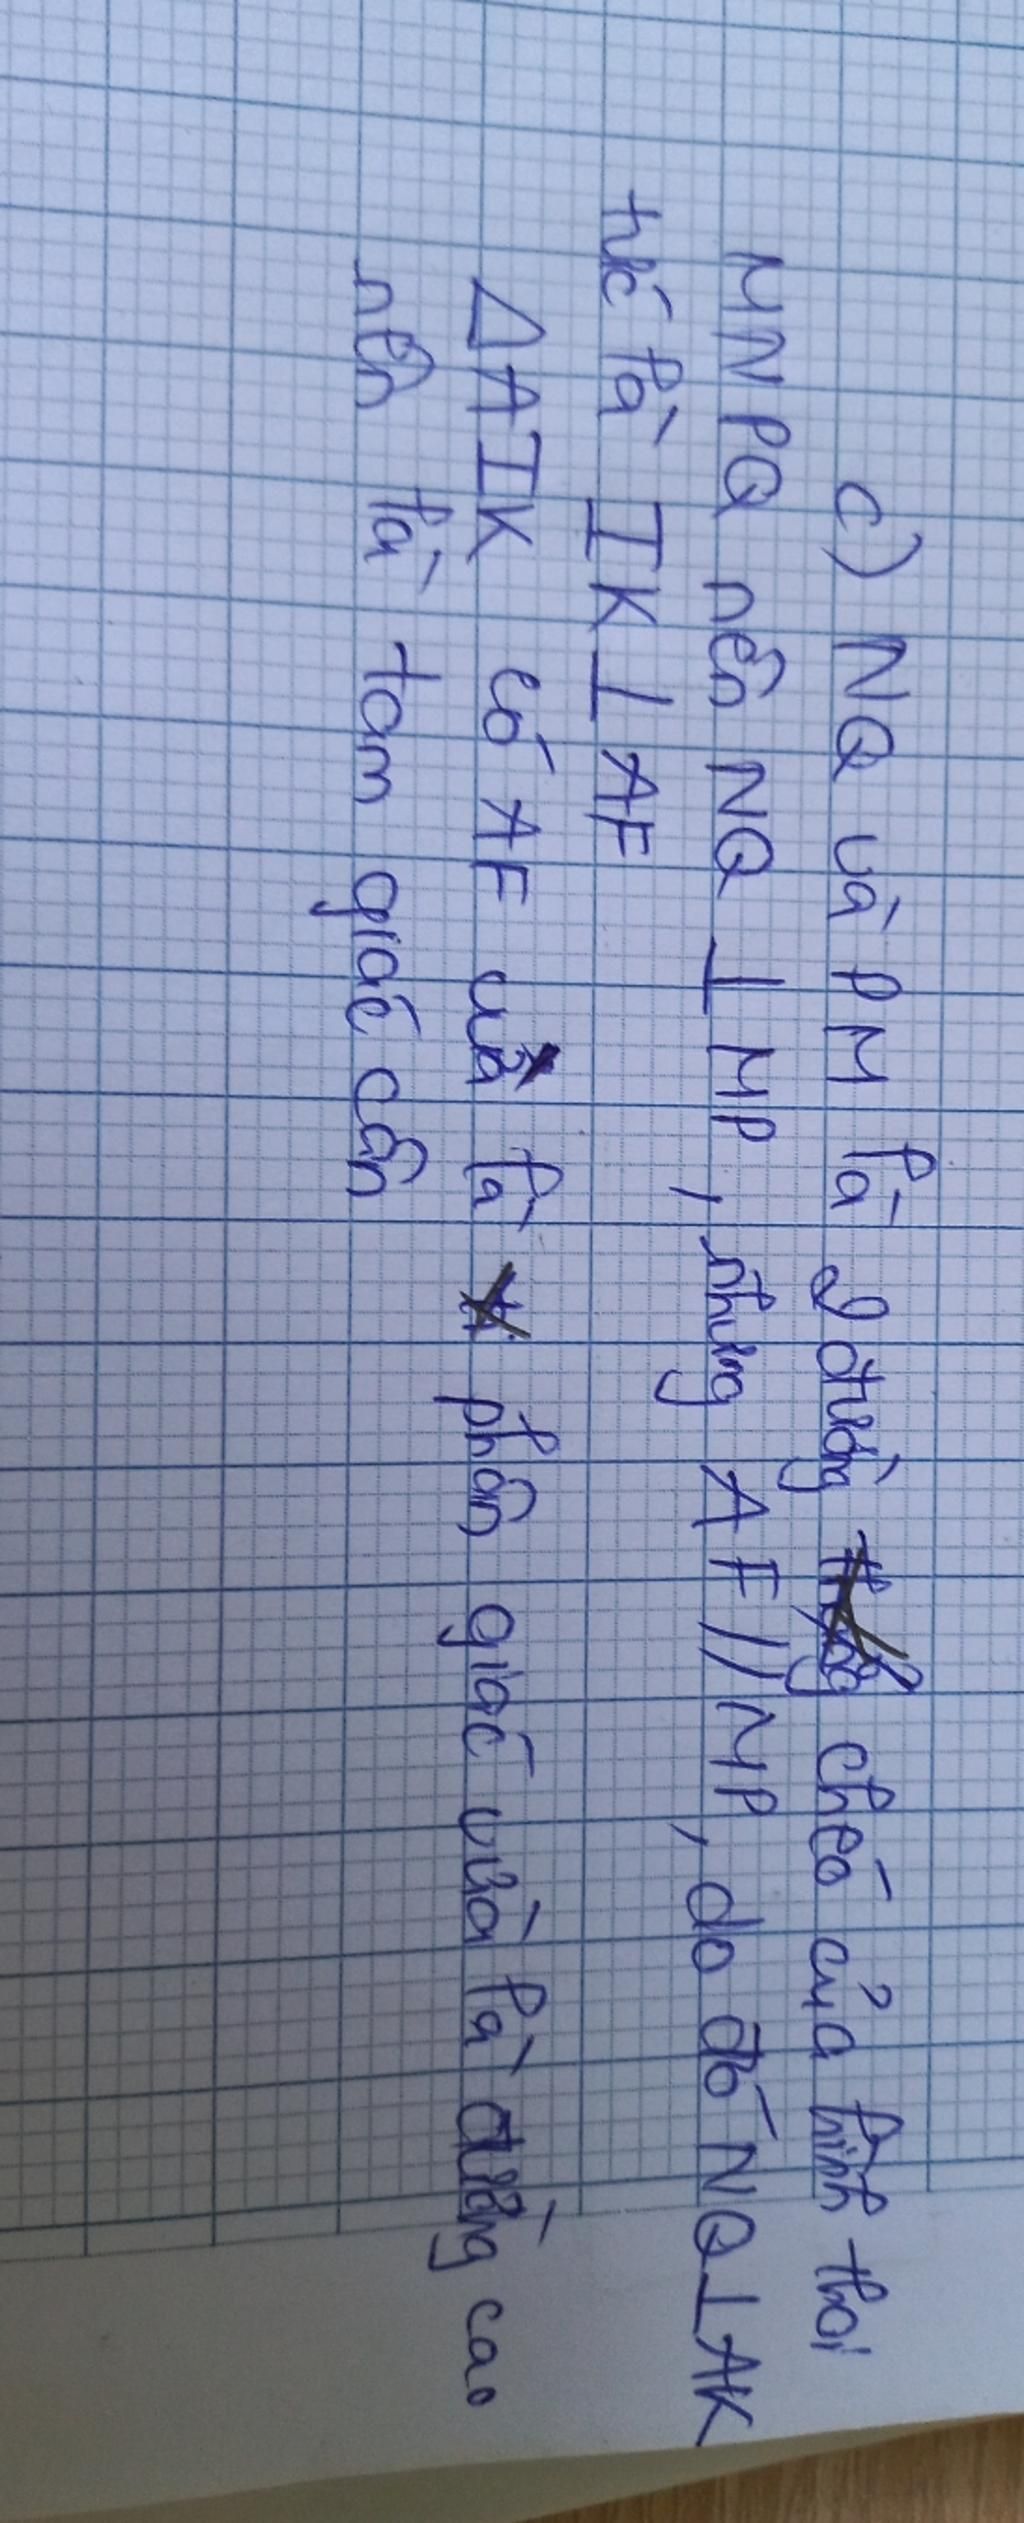 c) NQ và PM là 2 đường chéo của hình thoi
MNPQ nên NQ ⊥ MP, nhưng AF // MP, do đó NQ ⊥ AK
tức là IK ⊥ AF
ΔAIK có AF vừa là phân giác vừa là đường cao
nên là tam giác cân